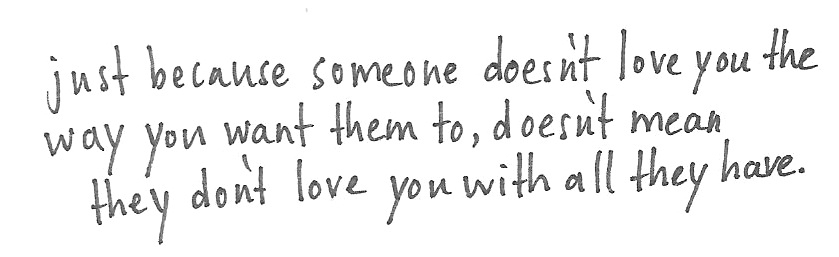 just because someone doesn't love you the
way you want them to, doesn't mean
they don't love you with all they have.